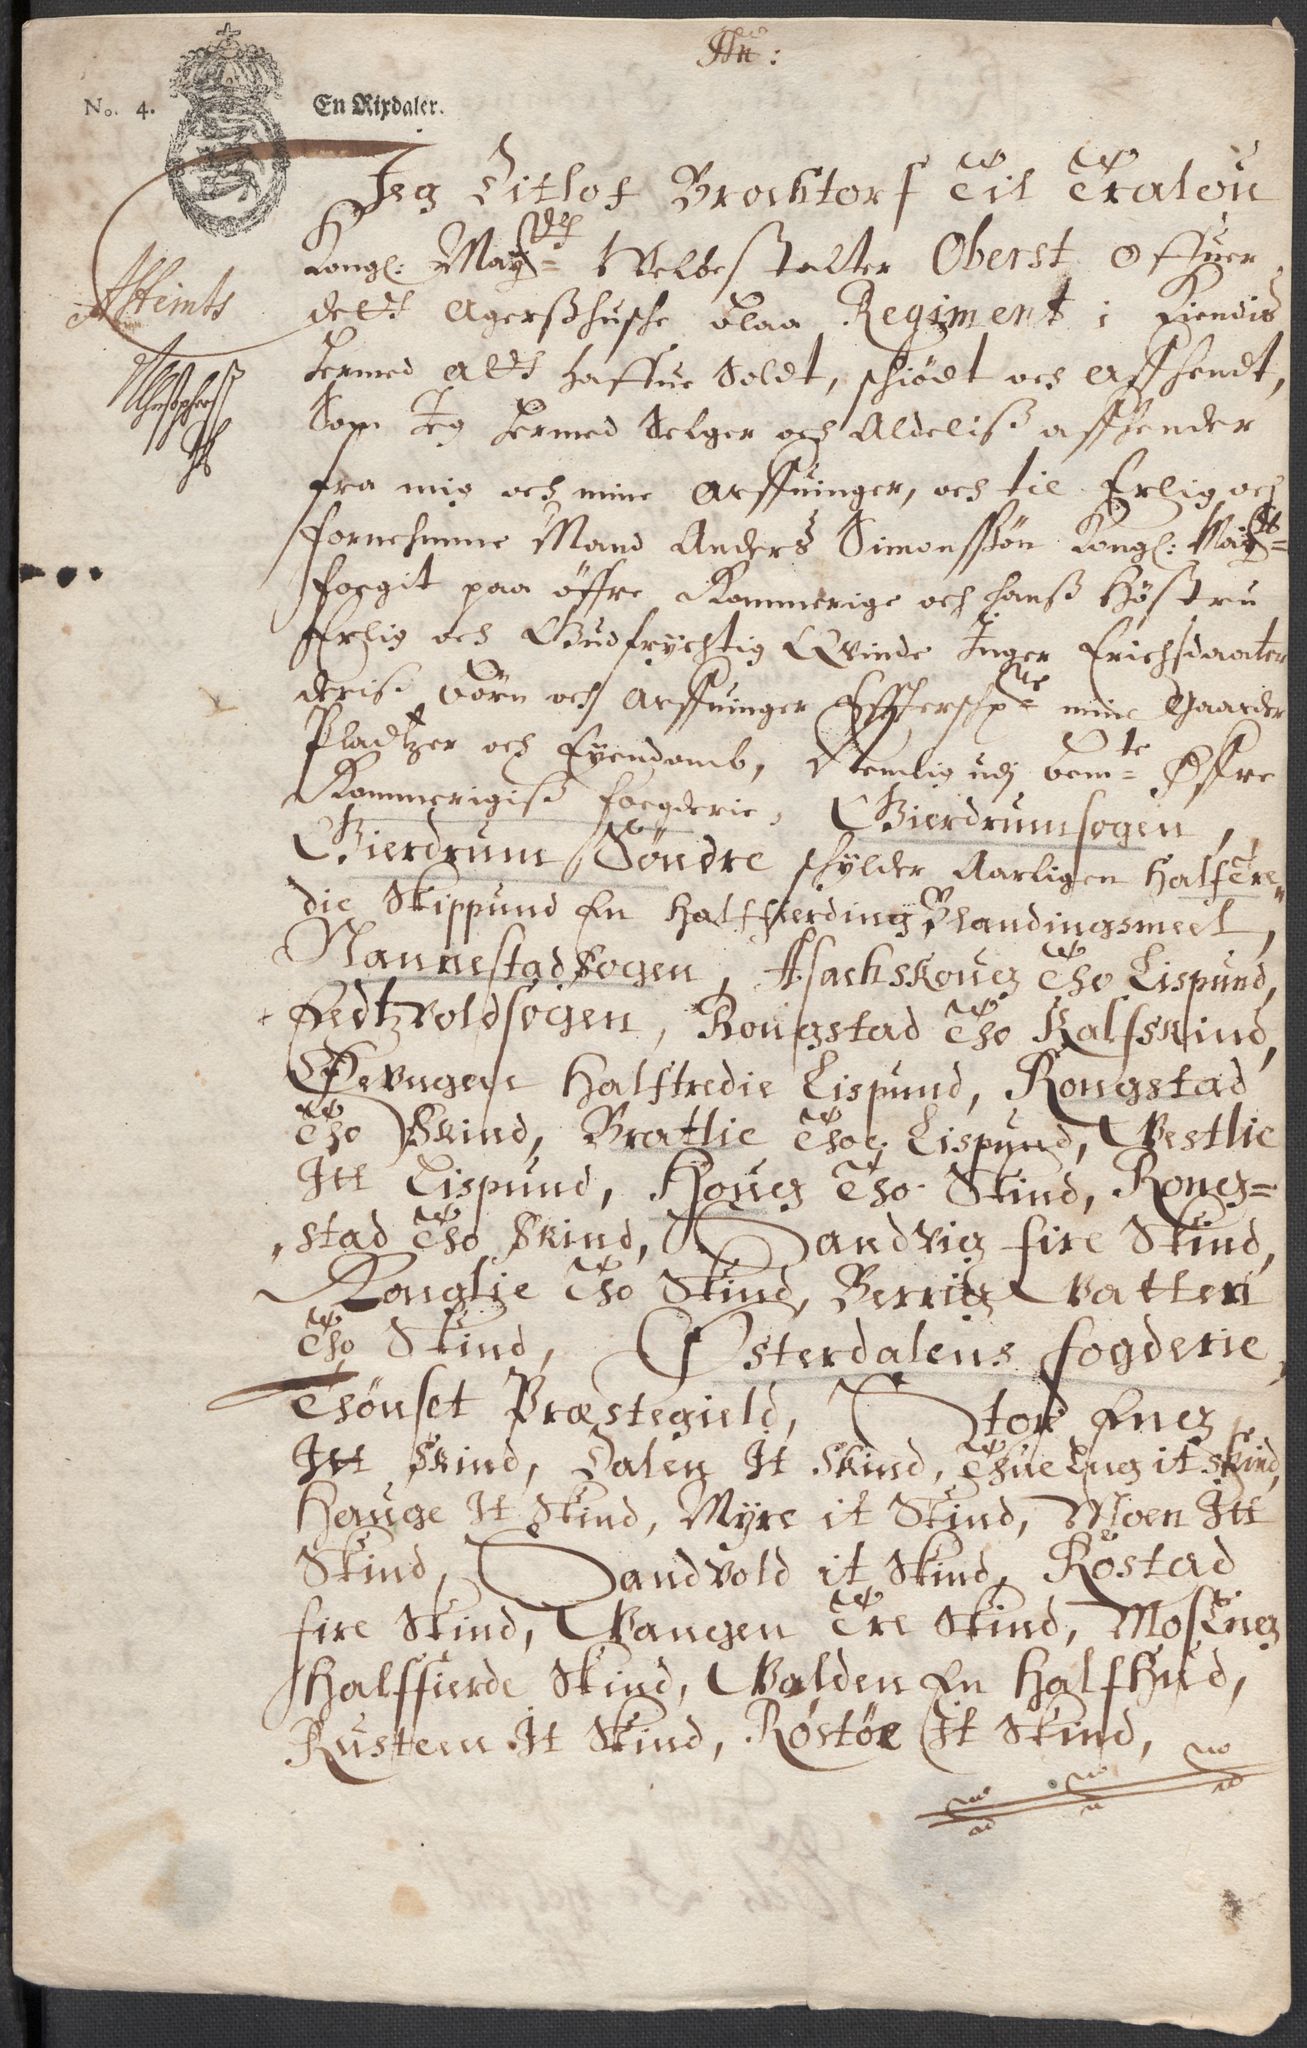 No. 4. En Rixdaler.
Jeg Ditlof Brocktorf Til Tralou
Kongl: May: Welbestalter Oberst Offuer
dett Agerßhusche blaa Regiment i Kiendis
hermed att haffue Soldt, schiödt och affhendt,
Som Jeg hermed Selger och Aldeliß affhender
fra mig och mine Arffuinger, och til Erlig och
fornehmme Mand Anders Simonssön Kongl: May:tz
foegit paa öffre Rommerige och hanß Höstru
Erlig och Gudfrychtig Qvinde Inger Erichsdaater
deris börn och Arffuinger Effterschr:ne mine Gaarder
Pladtzer och Eyendomb, Nemlig udj bem:te Øffre
Rommerigiß foegderie, Gierdrumsogen,
Gierdrum Söndre schylder Aarligen Halftre-
die Skippund En Halffierding Blandingsmeel,
Nannestadsogen, Asachskoug Tho Lispund,
Fedtzvoldsogen, Rougstad Tho Kalfskind,
Halftredie Lispund, Rongstad
Tho Skind, Bratlie Thoe Lispund, Westlie
Itt Lispund, Houg Tho Skind, Roug=
stad Tho Skind, Sandvig fire Skind,
Konglie Tho Skind, Berrig Watten
Tho Skind, Østerdalens fogderie,
Thönset Præstegield, Stor Eneg
Itt Skind, Dalen It Skind, it skind,
Hauge It Skind, Myre it Skind, Moen Itt
Skind, Sandvold it Skind, Röstad
fire Skind, Wangen Tre Skind, Moseneg
Halffierde Skind, Walden En Halfhud,
Rusteen It Skind, Röstöe It Skind,